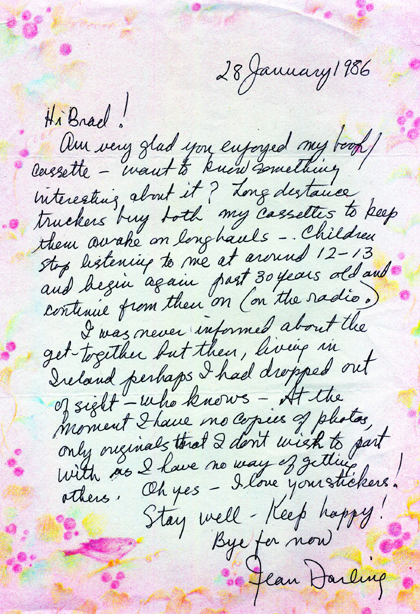 28 January 1986
Hi Brad!
Am very glad you enjoyed my book/
cassette – want to know something
interesting about it? Long distance
truckers buy both my cassettes to keep
them awake on long hauls -. Children
stop listening to me at around 12-13
and begin again past 30 years old and
continue from then on (on the radio.)
I was never informed about the
get-together but then, living in
Ireland perhaps I had dropped out
of sight – who knows – At the
moment I have no copies of photos,
only originals that I don't wish to part
with as I have no way of getting
others. Oh yes – I love your stickers!
Stay well – Keep happy!
Bye for now
Jean Darling